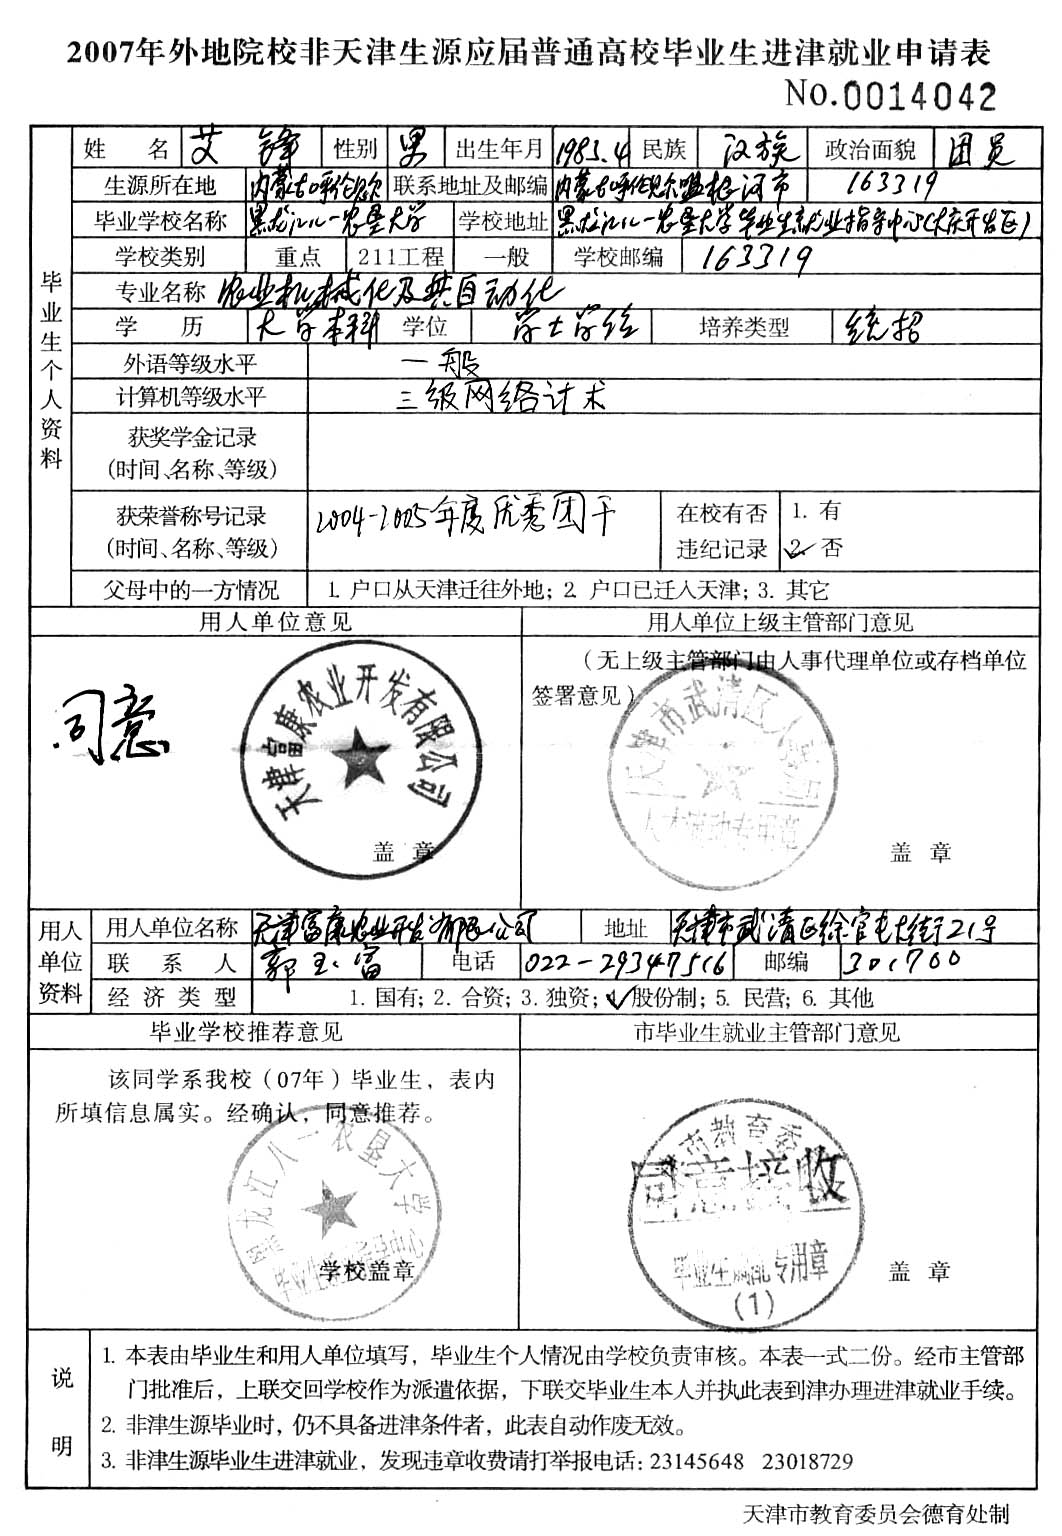 2007年外地院校非天津生源应届普通高校毕业生进津就业申请表
No.0014042
毕业生个人资料
姓 名 艾锋 性别 男 出生年月 1983.4 民族 汉族 政治面貌 团员
生源所在地 内蒙古呼伦 联系地址及邮编 内蒙古呼伦贝尔盟根河市 163319
毕业学校名称 黑龙江八一农垦大学 学校地址 黑龙江八一农垦大学毕业生就业指导中心(大庆开发区)
学校类别 重点 211工程 一般 学校邮编 163319
专业名称 农业机械化及其自动化
学 历 大学本科 学位 学士学位 培养类型 统招
外语等级水平 一般
计算机等级水平 三级网络计术
获奖学金记录
(时间、名称、等级)
获荣誉称号记录 2004-2005年度优秀团干 在校有否 1. 有
(时间、名称、等级) 违纪记录 2. 否
父母中的一方情况 1. 户口从天津迁往外地; 2. 户口已迁入天津; 3. 其它
用人单位意见 用人单位上级主管部门意见
(无上级主管部门由人事代理单位或存档单位
签署意见)
同意
天津富康农业开发有限公司
天津市武清区人事局
人才流动专用章
盖 章 盖 章
用人单位资料
用人单位名称 天津富康农业开发有限公司 地址 天津市武清区徐官屯大街21号
联 系 人 郭玉富 电话 022-29347516 邮编 301700
经 济 类 型 1. 国有; 2. 合资; 3. 独资; 股份制; 5. 民营; 6. 其他
毕业学校推荐意见 市毕业生就业主管部门意见
该同学系我校(07年)毕业生，表内
所填信息属实。经确认，同意推荐。
黑龙江八一农垦大学
学校盖章
市教育委
同意接收
毕业生调配专用章
(1)
盖 章
说明
1. 本表由毕业生和用人单位填写，毕业生个人情况由学校负责审核。本表一式二份。经市主管部
门批准后，上联交回学校作为派遣依据，下联交毕业生本人并执此表到津办理进津就业手续。
2. 非津生源毕业时，仍不具备进津条件者，此表自动作废无效。
3. 非津生源毕业生进津就业，发现违章收费请打举报电话: 23145648 23018729
天津市教育委员会德育处制